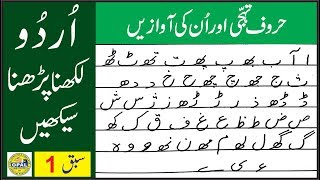 حروف تہجی اور اُن کی آوازیں
ا آ ب بھ پ پھ ت تھ ٹ ٹھ
ث ج جھ چ چھ ح خ د دھ
ڈ ڈھ ذ ر ڑ ڑھ ز ژ س ش
ص ض ط ظ ع غ ف ق ک کھ
گ گھ ل لھ م مھ ن نھ و ہ ھ
ء ی ے
اُردُو
لکھنا پڑھنا
سیکھیں
سبق 1